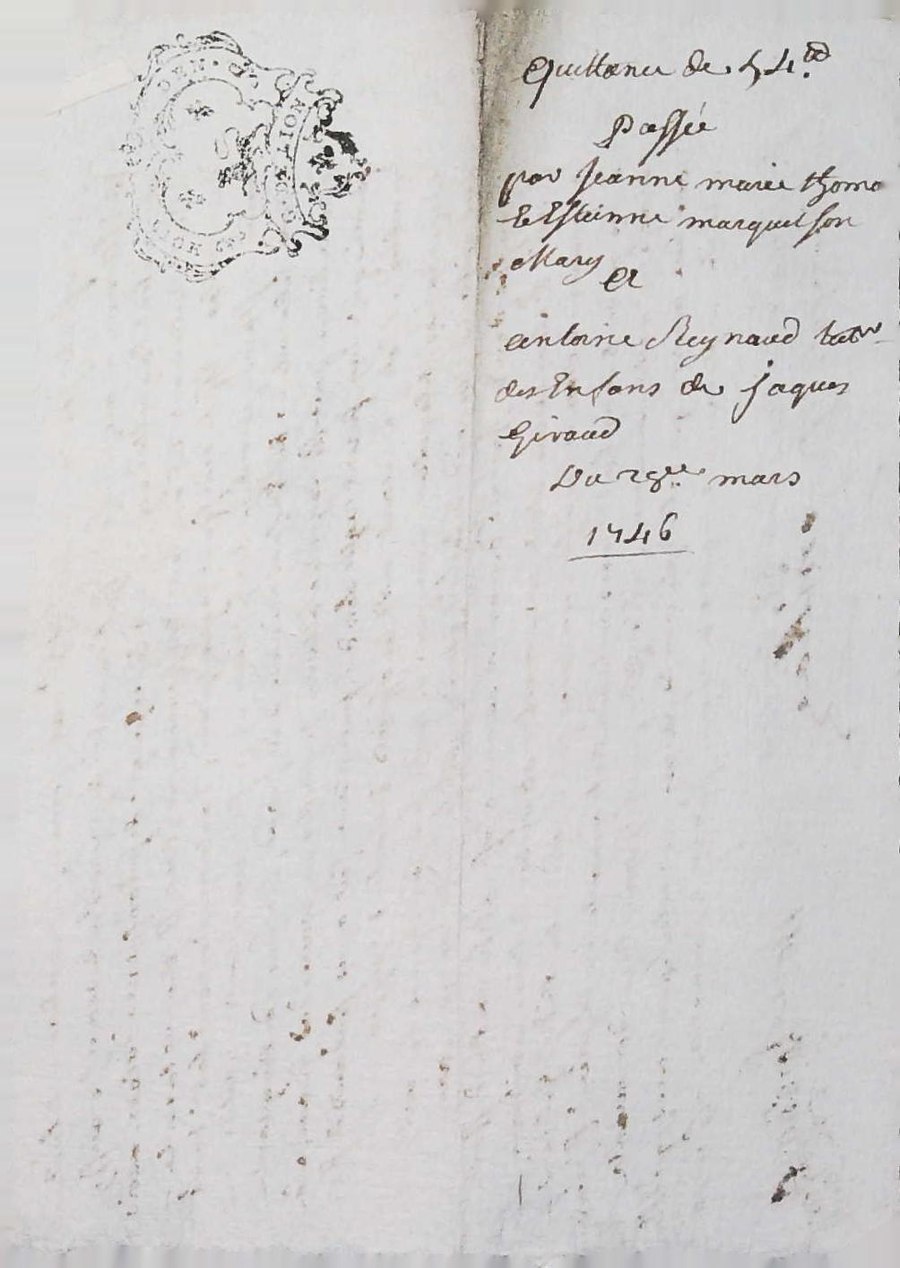 GEN.
Quittance de 54.tt
Passée
par Jeanne marie thoma
& Estienne marquet son
Mary
A
antoine Reynaud tutr
des Enfans de jaques
Giraud
Du 28.e mars
1746